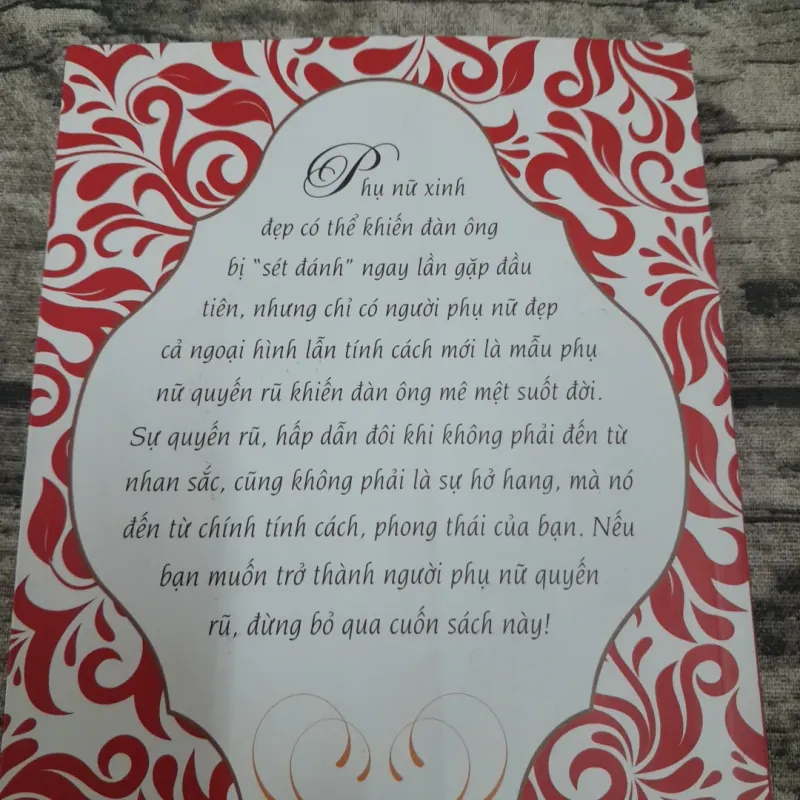 Phụ nữ xinh
đẹp có thể khiến đàn ông
bị "sét đánh" ngay lần gặp đầu
tiên, nhưng chỉ có người phụ nữ đẹp
cả ngoại hình lẫn tính cách mới là mẫu phụ
nữ quyến rũ khiến đàn ông mê mệt suốt đời.
Sự quyến rũ, hấp dẫn đôi khi không phải đến từ
nhan sắc, cũng không phải là sự hở hang, mà nó
đến từ chính tính cách, phong thái của bạn. Nếu
bạn muốn trở thành người phụ nữ quyến
rũ, đừng bỏ qua cuốn sách này!